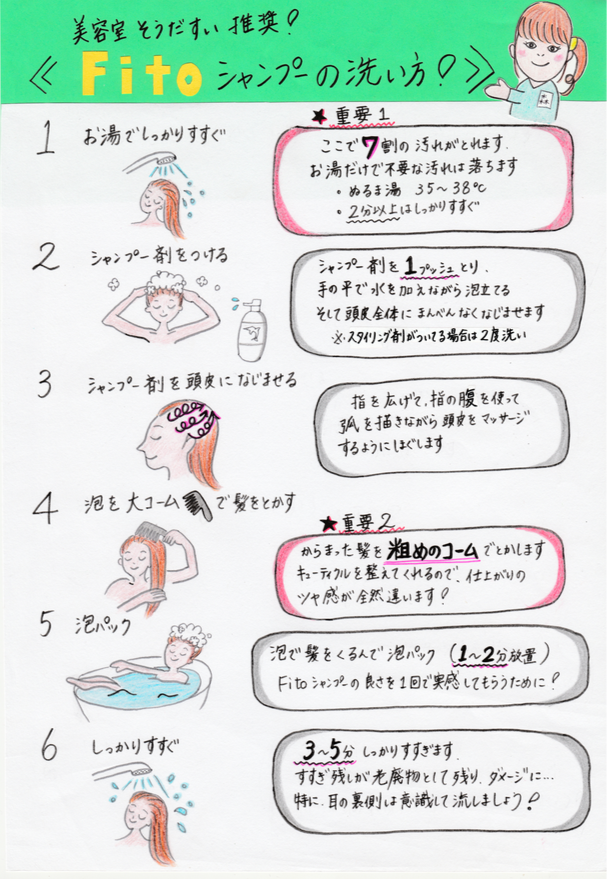 美容室そうだすい推奨!
《Fitoシャンプーの洗い方!》
1 お湯でしっかりすすぐ
★重要1
ここで7割の汚れがとれます.
お湯だけで不要な汚れは落ちます
・ぬるま湯 35〜38℃
・2分以上はしっかりすすぐ
2 シャンプー剤をつける
シャンプー剤を1プッシュとり、
手の平で水を加えながら泡立てる
そして頭皮全体にまんべんなくなじませます
※スタイリング剤がついてる場合は2度洗い
3 シャンプー剤を頭皮になじませる
指を広げて、指の腹を使って
弧を描きながら頭皮をマッサージ
するようにほぐします
4 泡を大コームで髪をとかす
★重要2
からまった髪を粗めのコームでとかします
キューティクルを整えてくれるので、仕上がりの
ツヤ感が全然違います!
5 泡パック
泡で髪をくるんで泡パック(1〜2分放置)
Fitoシャンプーの良さを1回で実感してもらうために!
6 しっかりすすぐ
3〜5分しっかりすすぎます.
すすぎ残しが老廃物として残り、ダメージに…
特に、耳の裏側は意識して流しましょう!